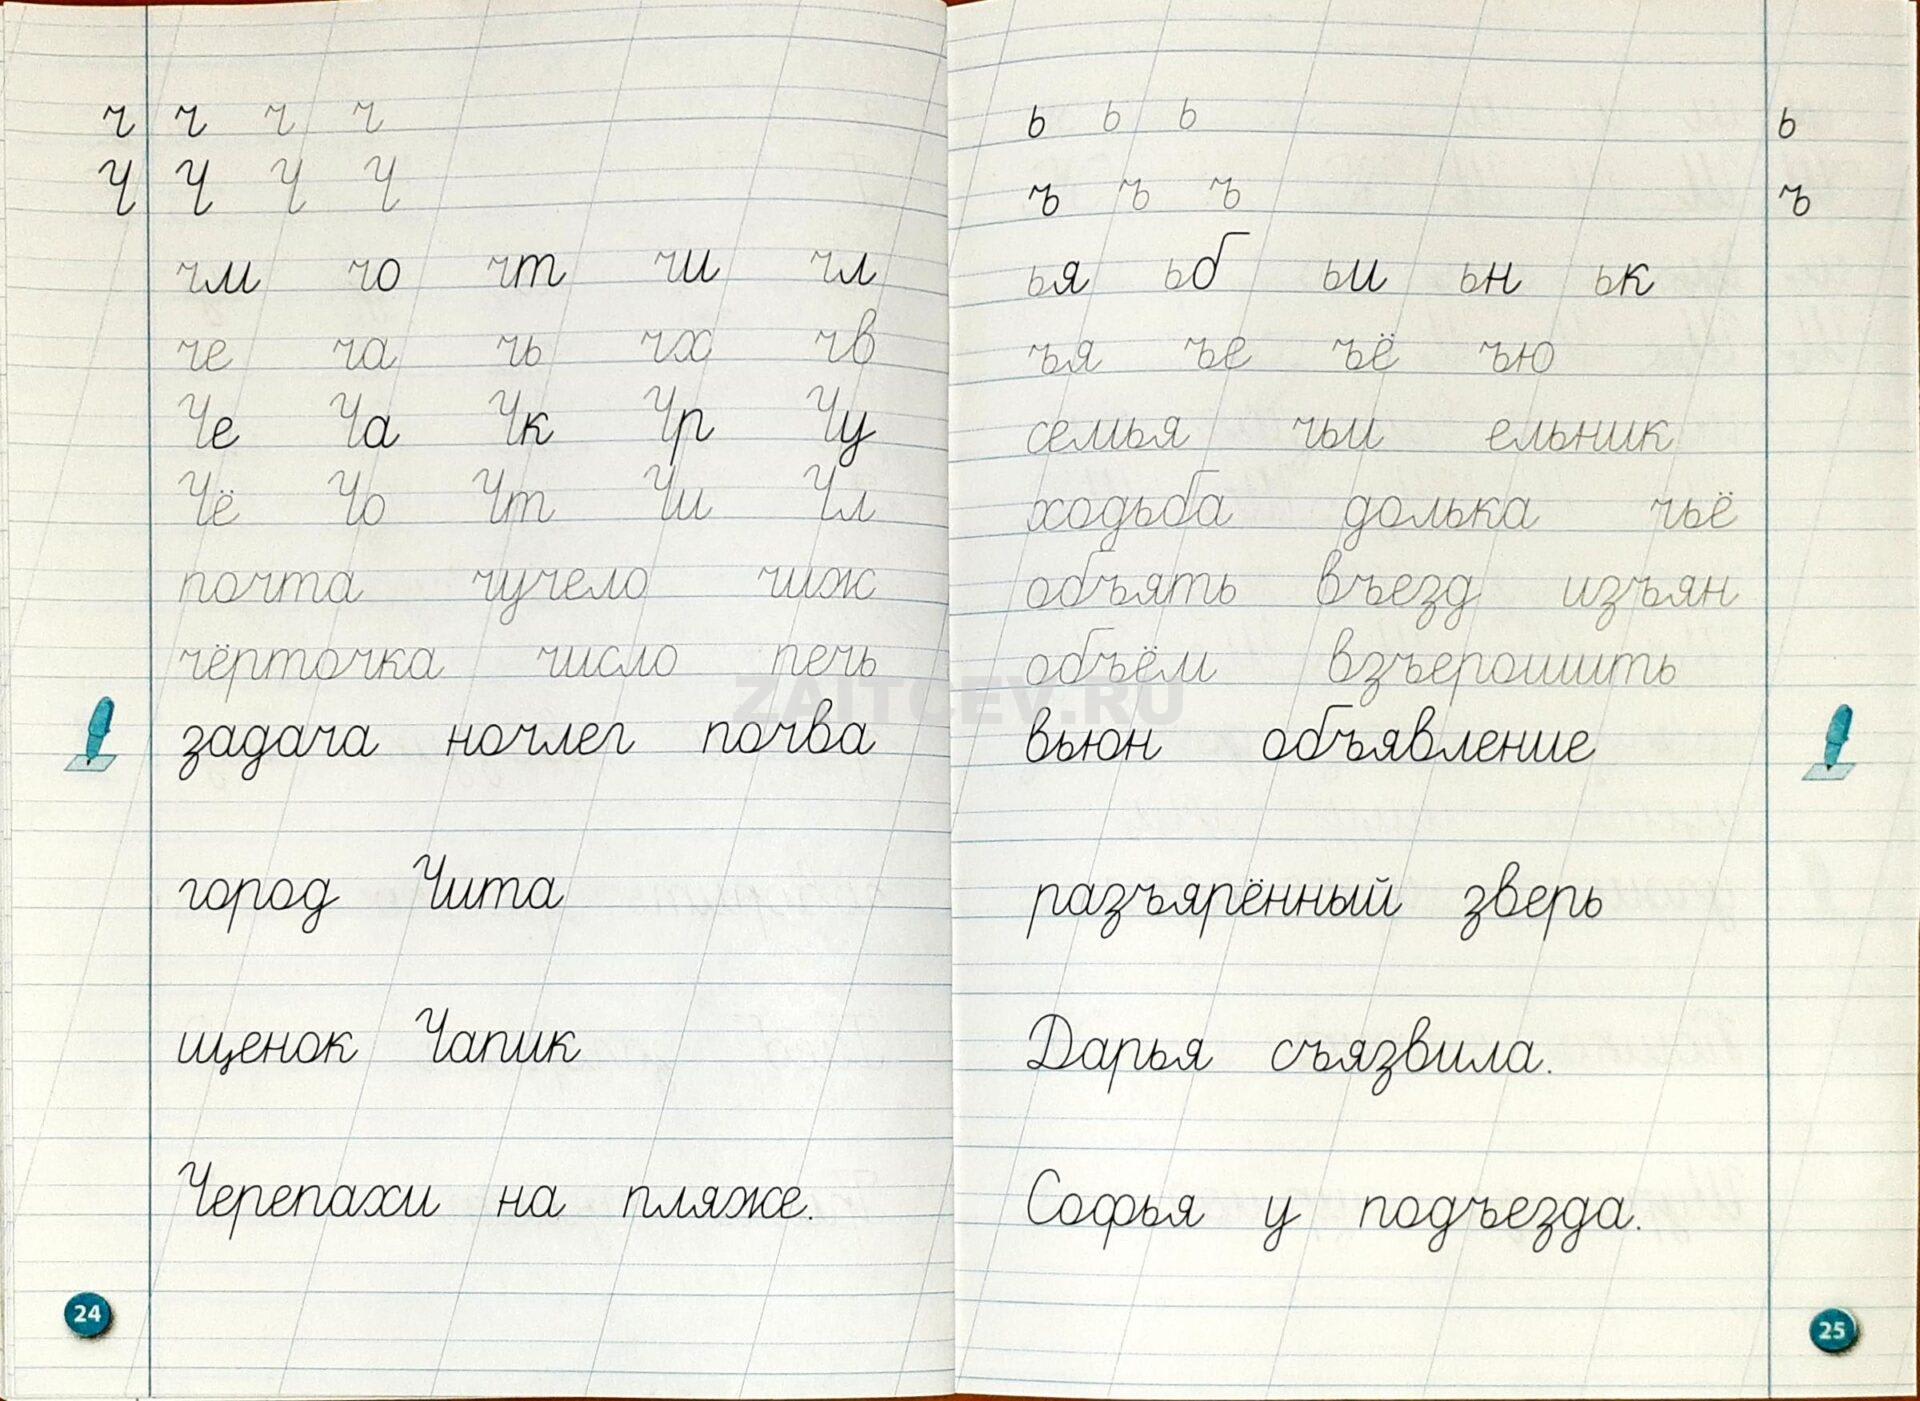 ч ч ч ч
Ч Ч Ч Ч
чм чо чт чи чл
че ча чь чх чв
Че Ча Чк Чр Чу
Чё Чо Чт Чи Чл
почта чучело чиж
чёрточка число печь
задача ночлег почва
город Чита
щенок Чапик
Черепахи на пляже.
24
ь ь ь ь
ъ ъ ъ ъ
ья ьб ьи ьн ьк
ъя ъе ъё ъю
семья чьи ельник
ходьба долька чьё
объять въезд изъян
объём взъерошить
вьюн объявление
разъярённый зверь
Дарья съязвила.
Софья у подъезда.
25
ZAITCEV.RU